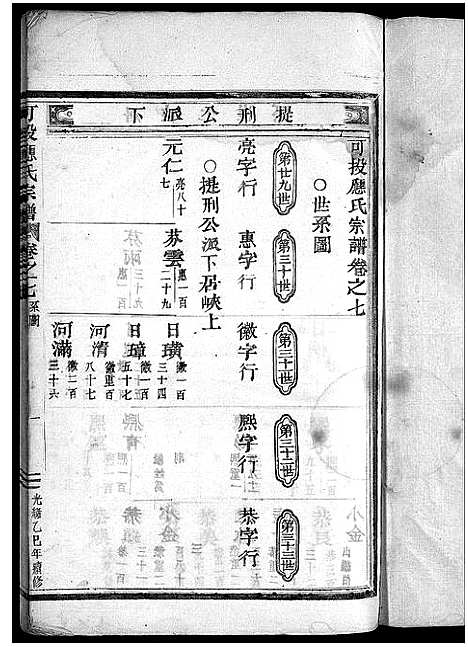 提刑公派下
可投應氏宗譜卷之七
○世系圖
第廿九世
第三十世
第三十一世
第三十二世
第三十三世
亮字行
惠字行
徽字行
熈字行
恭字行
○提刑公派下居峽上
元仁
亮八十七
芬雲
惠一百二十九
日璜
徽一百三十四
日璋
徽一百五十七
河清
徽重百八十七
河滿
徽一百三十六
可投應氏宗譜
卷之七
系圖
一
光緒乙巳年續修
小金